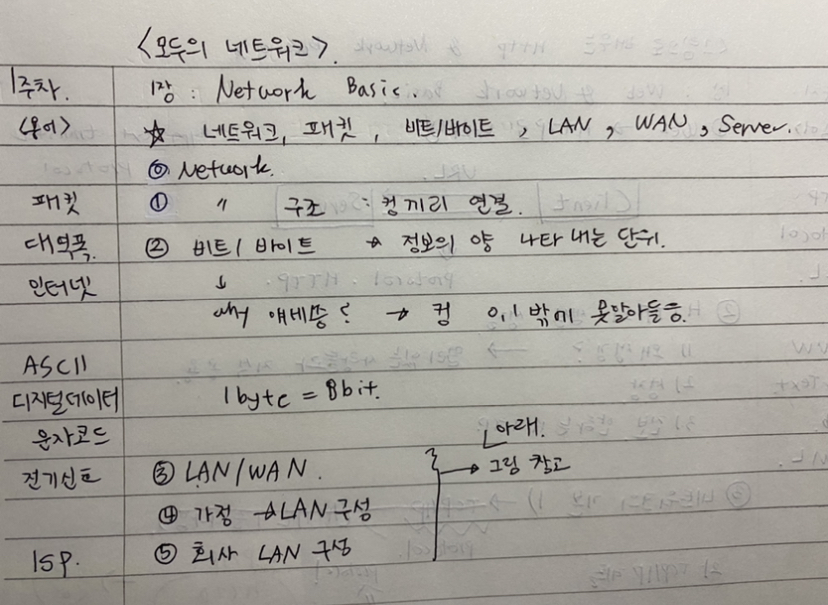 <모두의 네트워크>.
1주차. 1장 : Network Basic.
<용어> ☆ 네트워크, 패킷, 비트/바이트, LAN, WAN, Server.
⓪ Network.
패킷 ① 〃 구조 : 컴끼리 연결.
대역폭. ② 비트/바이트 → 정보의 양 나타내는 단위.
인터넷 ↓
why 얘네씀? → 컴 0,1 밖에 못알아들음.
ASCII
디지털데이터 1byte = 8bit.
문자코드 아래.
전기신호 ③ LAN/WAN. → 그림 참고
④ 가정 → LAN 구성
ISP. ⑤ 회사 LAN 구성